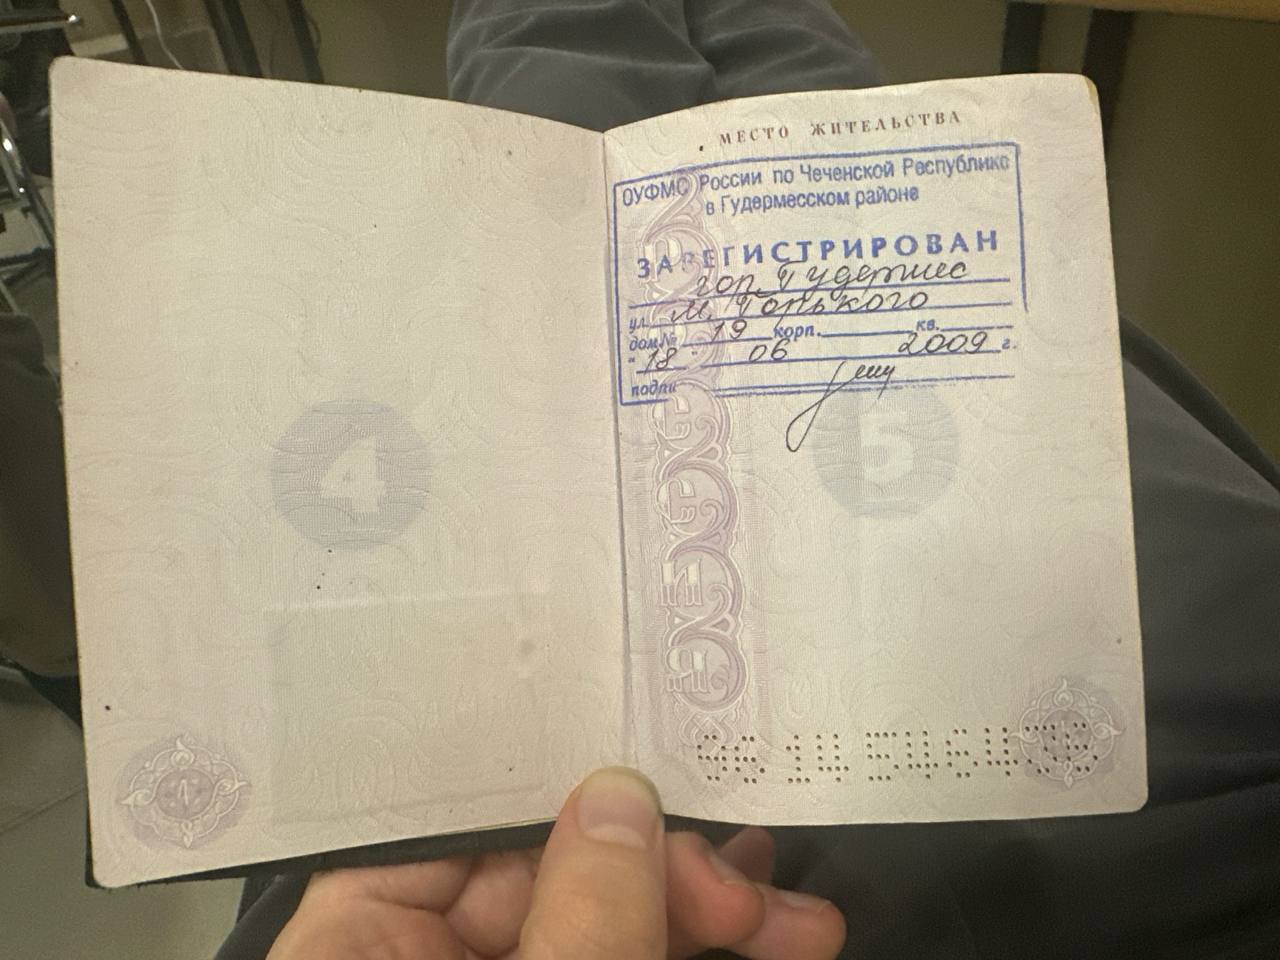 МЕСТО ЖИТЕЛЬСТВА
ОУФМС России по Чеченской Республике
в Гудермесском районе
ЗАРЕГИСТРИРОВАН
гор. Гудермес
ул. М. Горького
дом № 19 корп. кв.
"18" 06 2009 г.
подпи
4
5
РОССИЯ
96 14 546436